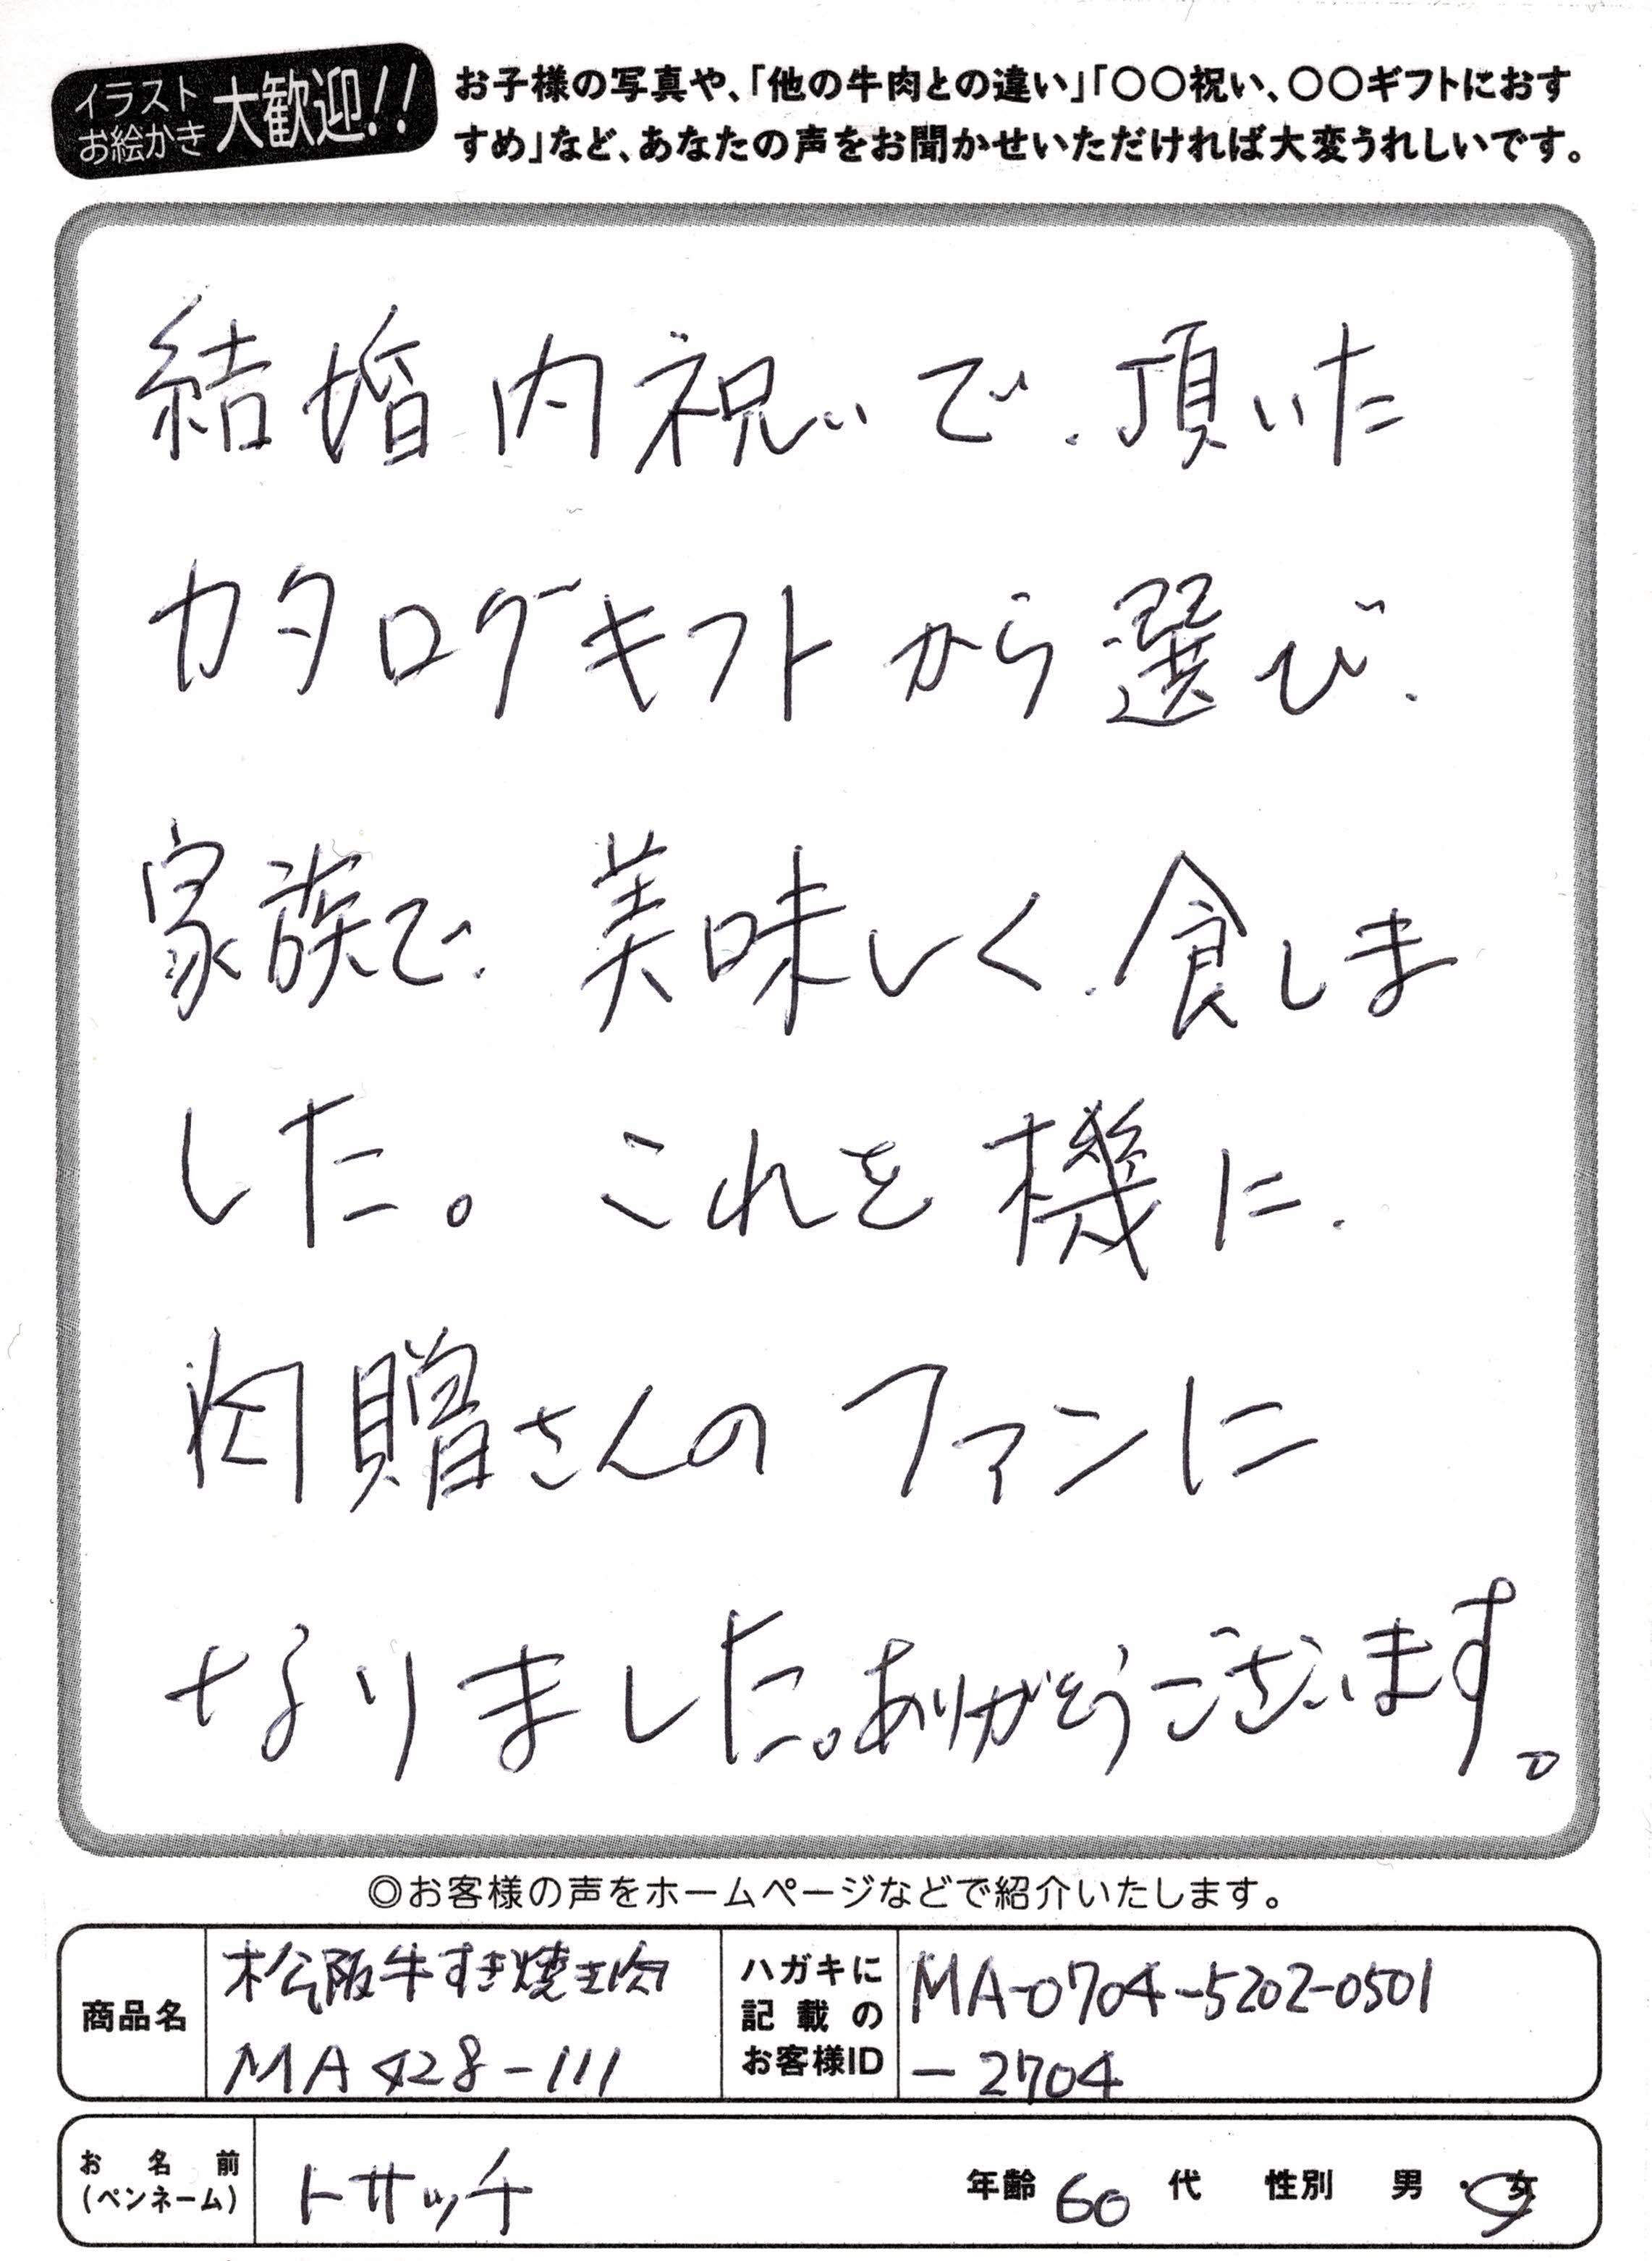 イラスト
お絵かき
大歓迎!!
お子様の写真や、「他の牛肉との違い」「〇〇祝い、〇〇ギフトにおす
すめ」など、あなたの声をお聞かせいただければ大変うれしいです。
結婚内祝いで、頂いた
カタログギフトから選び、
家族で、美味しく、食しま
した。これを機に、
肉贈さんのファンに
なりました。ありがとうございます。
◎お客様の声をホームページなどで紹介いたします。
商品名
松阪牛すき焼き肉
MA428-111
ハガキに
記載の
お客様ID
MA-0704-5202-0501
-2704
お名前
(ペンネーム)
トサッチ
年齢 60 代 性別 男・女